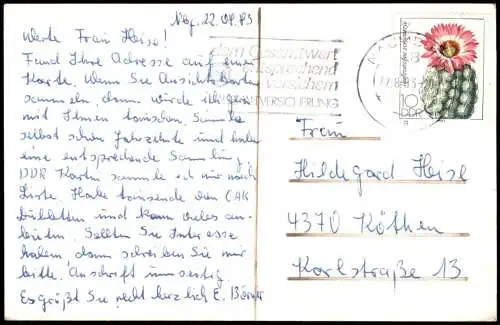 Mbg. 22.08.83
Werte Frau Heise!
Fand Ihre Adresse auf einer
Karte. Wenn Sie Ansichtskarten
sammeln, dann würde ich gern
mit Ihnen tauschen. Sammle
selbst schon Jahrzehnte und habe
eine entsprechende Sammlung.
DDR Karten sammle ich nur nach
Liste. Habe tausende von
Dubletten und kann vieles an-
bieten. Sollten Sie Interesse
haben, dann schreiben Sie mir
bitte. Anschrift umseitig.
Es grüßt Sie recht herzlich E.
dem Gesamtwert
entsprechend
versichern
10
DDR
Frau
Hildegard Heise
4370 Köthen
Karlstraße 13